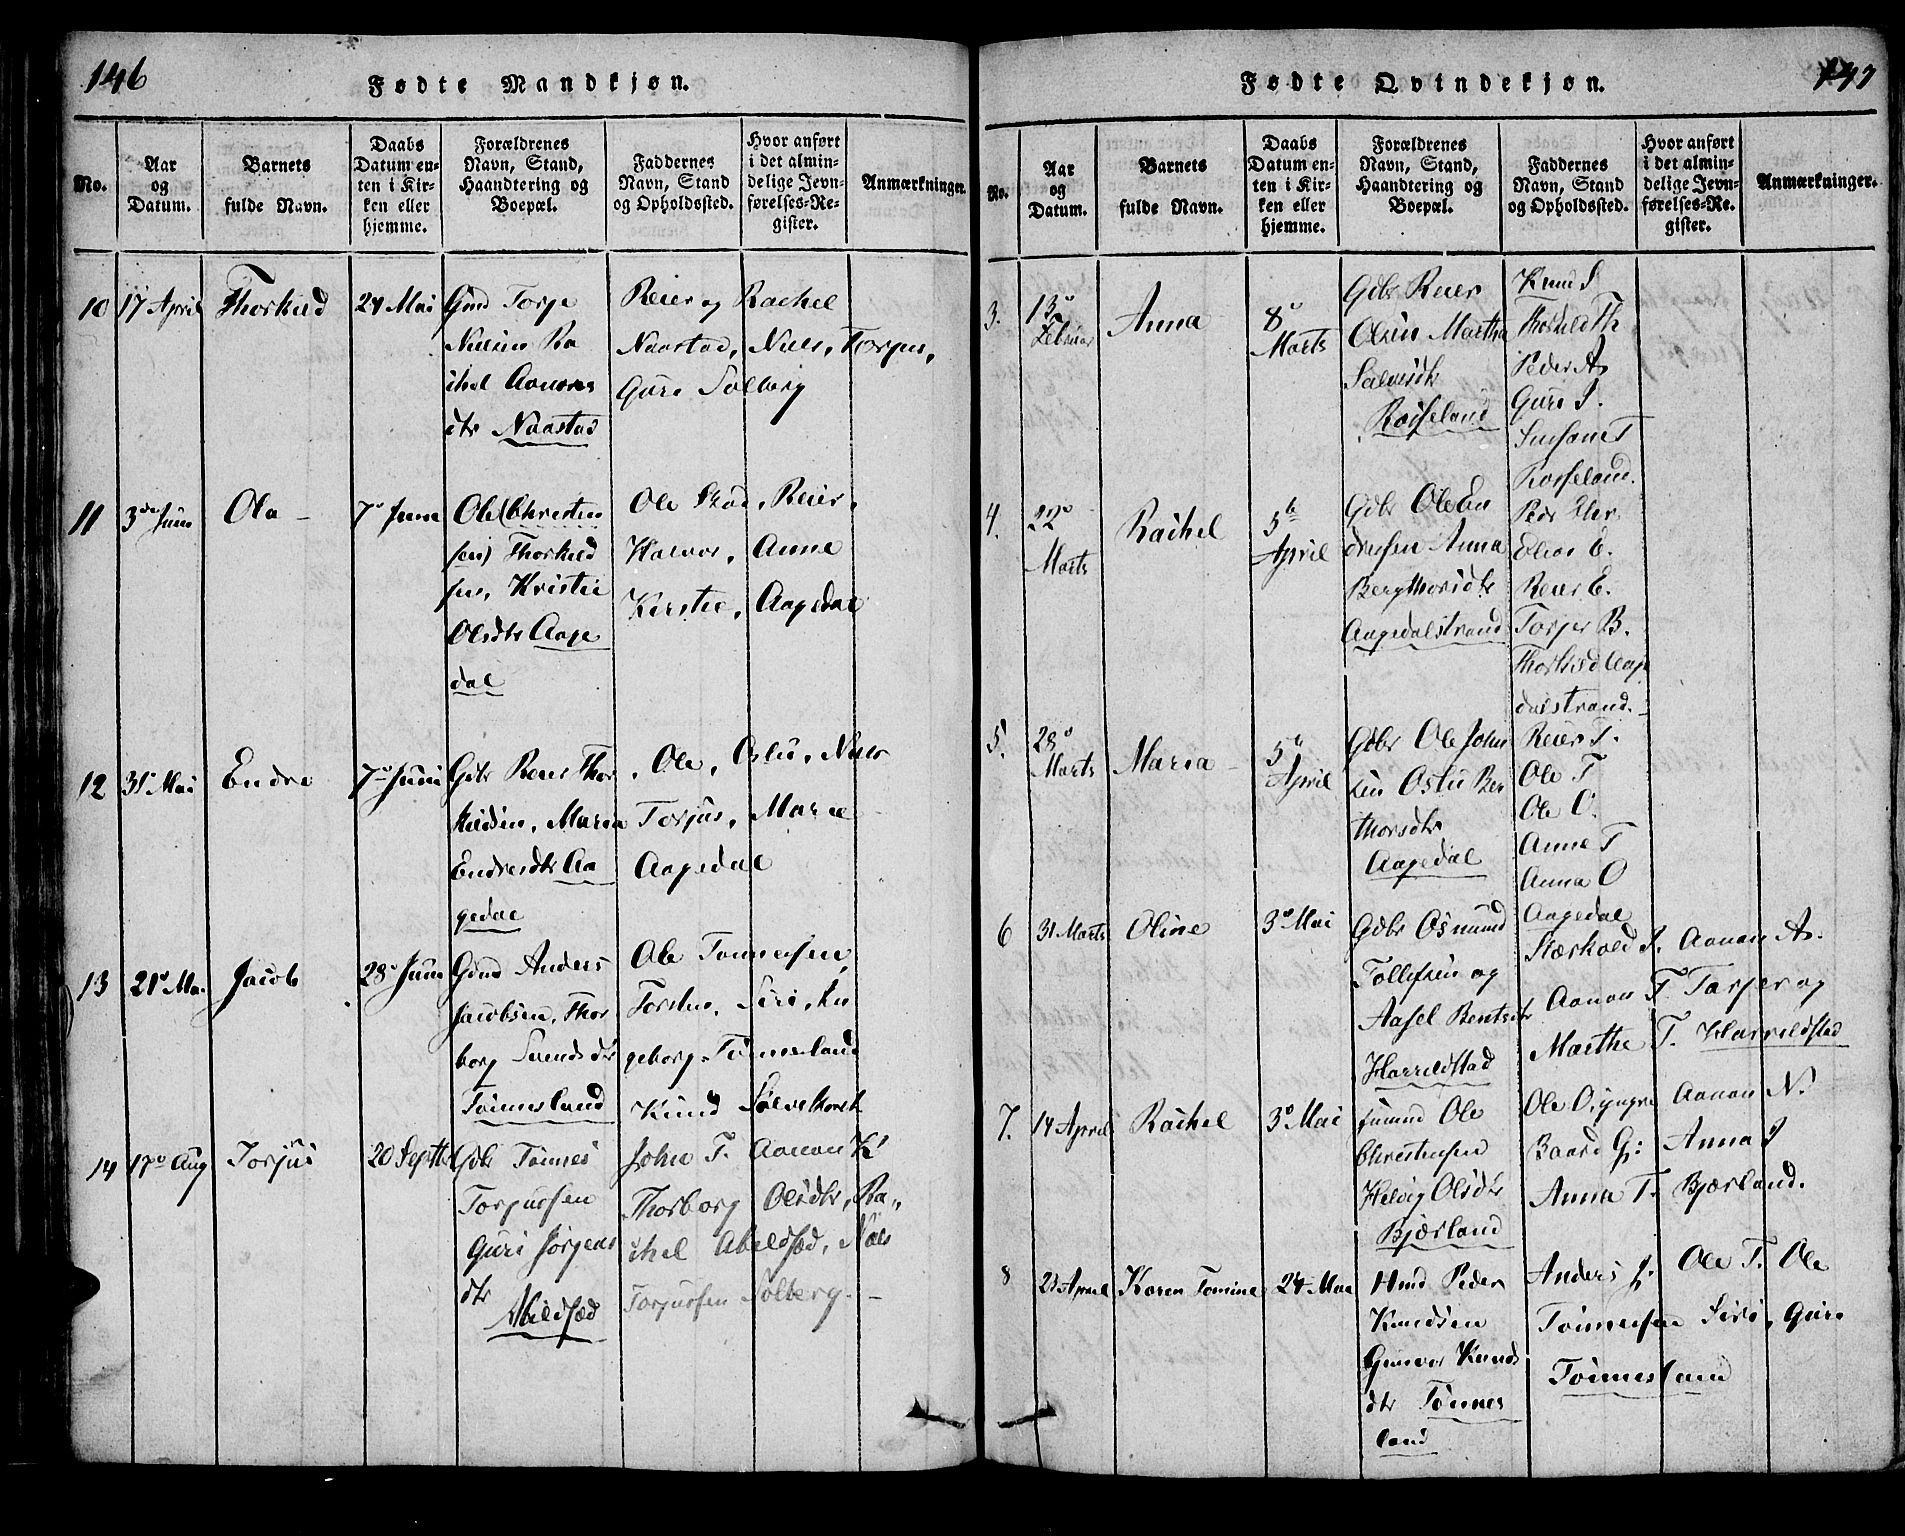 146
Fødte Mandkjøn.
No.
Aar
og
Datum.
Barnets
fulde Navn.
Daabs
Datum en-
ten i Kir-
ken eller
hjemme.
Forældrenes
Navn, Stand,
Haandtering og
Boepæl.
Faddernes
Navn, Stand
og Opholdssted.
Hvor anført
i det almin-
delige Jevn-
førelses-Re-
gister.
Anmærkninger.
10
17 April
Thorkild
24 Mai
Gmd Torje
Nielsen Ra
chel Aanons
dtr Naastad
Reier og Rachel
Naastad, Niels, Torjus,
Guri Solberg
11
3die Juni
Ola
7de Juni
Ole (Christen
sen) Thorkild
sen, Kristie
Olsdtr Aage
dal
Ole Skod, Reier,
Halvor, Anne
Kirstie, Aagedal
12
31te Mai
Endre
7de Juni
Gdbr Reier Thor
kildsen, Maria
Endresdtr Aa
gedal
Ole, Oslu, Niels
Torjus, Marie
Aagedal
13
21de Ma.
Jacob
28de Juni
Gmd Anders
Jacobsen, Thor
borg Svends dtr
Tønnesland
Ole Tønnesen,
Torsten, Siri, In
geborg Tønnesland
Knud
14
17de Aug
Torjus
20 Septbr
Gdbr Tønnes
Torjussen
Guri Jørgens
dtr
Abildsæd
John T. Aanon K!
Thorborg Olsdtr, Ra,,
chel Abildsæd, Niels
Torjussen Solberg.
147
Fødte Qvindekjøn.
No.
Aar
og
Datum.
Barnets
fulde Navn.
Daabs
Datum en-
ten i Kir-
ken eller
hjemme.
Forældrenes
Navn, Stand,
Haandtering og
Boepæl.
Faddernes
Navn, Stand
og Opholdssted.
Hvor anført
i det almin-
delige Jevn-
førelses-Re-
gister.
Anmærkninger.
3.
13de
Februar
Anna
8de
Marts
Gdbr Reier
Olsen Martha
Salvesdtr
Roiseland
Knud S
Thorkild Th
Peder As
Guri S.
Susane T
Rosseland.
4.
22de
Marts
Rachel
5te
April
Gdbr Ole En
dresen Anna
Bergthorsdtr
Aagedalstrand
Elias E.
Reier E.
Torjer B.
Thorkild Aage
dalstrand.
5.
28de
Marts
Maria
5te
April
Gdbr Ole John
sen Oslu Ber
thorsdtr
Aagedal
Reier T.
Ole T
Ole O.
Anne T
Anna O
Aagedal
6
31 Marts
Oline
3de Mai
Gdbr Osmund
Tollefsen og
Aasel Bentsdtr
Harrildstad
Stærkold T. Aanon As.
Aanon T. Tarjer og
Marthe T. Harrildstad
7.
14 April
Rachel
3de Mai
Ole
Christensen
Helvig Olsdtr
Bjærland
Ole O. yngre Aanon N.
Baard G: Anna J
Anna T. Bjærland.
8
21 April
Karen Tomine
24 Mai
Hmd Peder
Knudsen
Gunvor Knuds
dtr Tønnes
land
Anders J: Ole T. Ole
Tønnesen Siri, Guri
Tønnesland